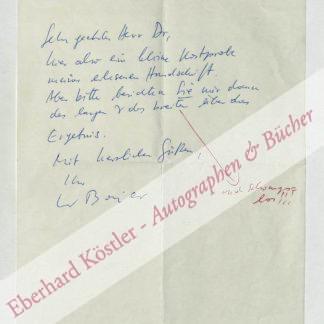 Sehr geehrter Herr Dr,
hier also ein kleine Kostprobe
meiner erlesenen Handschrift.
Aber bitte berichten Sie mir dann
des langen & des breiten über das
Ergebnis.
Mit herzlichen Grüßen,
Ihr
und schonungs
los!!!
Eberhard Köstler - Autographen & Bücher